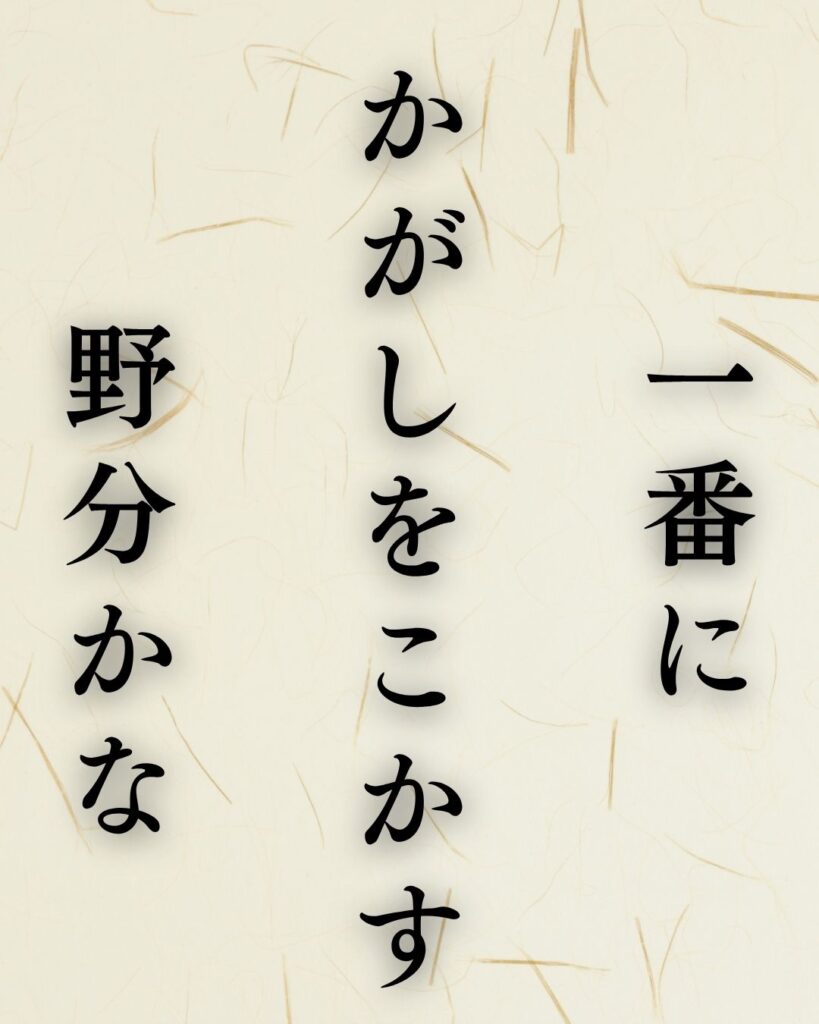 一番に
かがしをこかす
野分かな